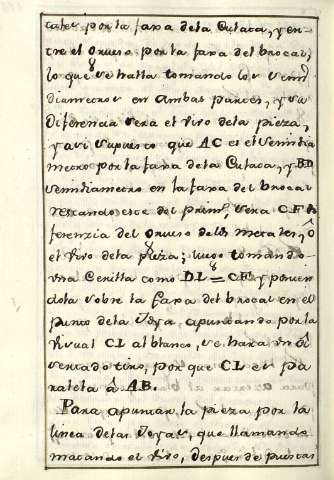 tales por la faxa dela Culata, y en-
tre el Grueso por la faxa del brocal,
lo que se halla tomando los semi
diametros en ambas partes, y su
diferencia sera el viso dela pieza,
y asi supuesto que AC es el semidia
metro por la faxa dela Culata, y BD
semidiametro en la faxa del brocal
restando este del prim.º, sera C.F. di
ferenzia del Grueso de los metales, ô
el viso dela pieza; luego tomando
una Cerilla como DL = CF y ponien
dola sobre la faxa del brocal en el
punto dela Joya apuntando por la
visual CL al blanco, se hara un a
sertado tiro, por que CL es pa
ralela â AB.
Para apuntar la pieza por la
linea delas Joyas, que llamando
matando el viso, despues de puestas